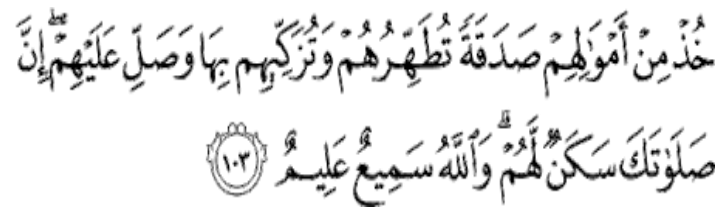 خُذْ مِنْ أَمْوَٰلِهِمْ صَدَقَةً تُطَهِّرُهُمْ وَتُزَكِّيهِم بِهَا وَصَلِّ عَلَيْهِمْ ۖ إِنَّ
صَلَوٰتَكَ سَكَنٌ لَّهُمْ ۗ وَٱللَّهُ سَمِيعٌ عَلِيمٌ ١٠٣